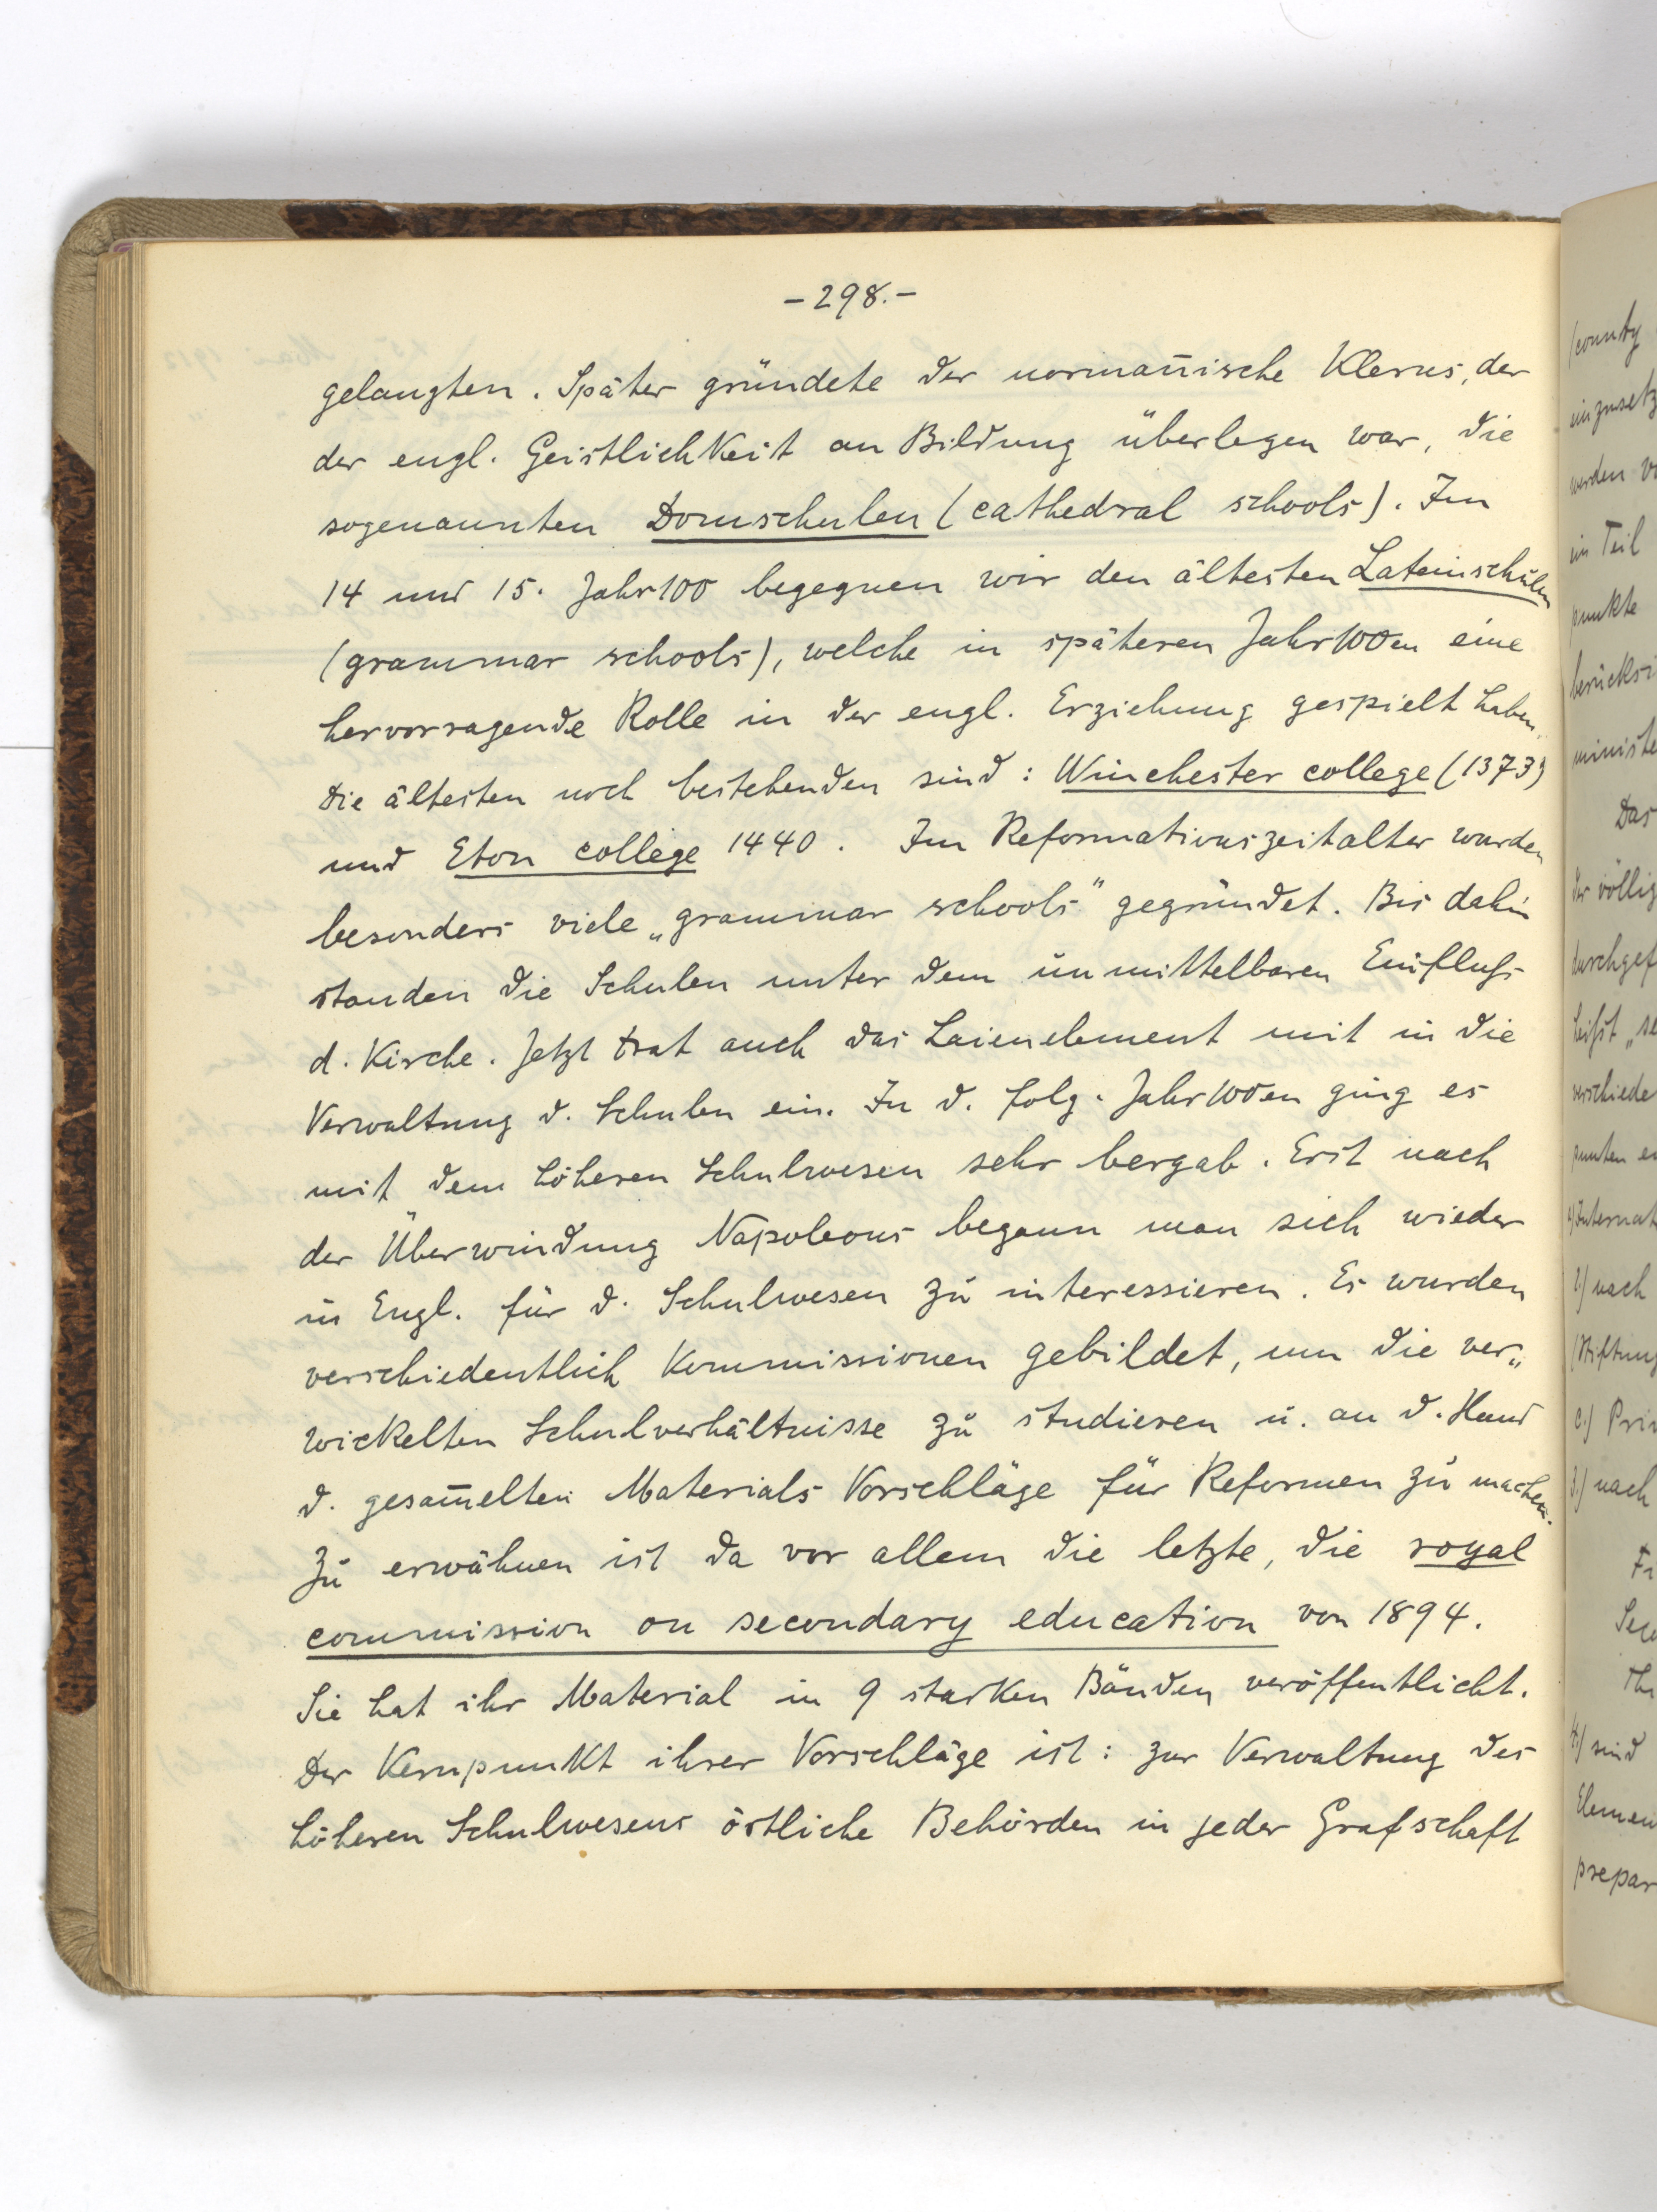 -298.-
gelangten. Später gründete der norman̄ische Klerus, der
der engl. Geistlichkeit an Bildung überlegen war, die
sogenannten Domschulen (cathedral schools). Im
14 und 15. Jahr100 begegnen wir den ältesten Lateinschulen
(grammar schools), welche in späteren Jahr100en eine
hervorragende Rolle in der engl. Erziehung gespielt haben.
Die ältesten noch bestehenden sind: Winchester college (1373)
und Eton college 1440. Im Reformationszeitalter wurden
besonders viele „grammar schools" gegründet. Bis dahin
standen die Schulen unter dem unmittelbaren Einfluß
d. Kirche. Jetzt trat auch das Laienelement mit in die
Verwaltung d. Schulen ein. In d. folg. Jahr100en ging es
mit dem höheren Schulwesen sehr bergab. Erst nach
der Überwindung Napoleons begann man sich wieder
in Engl. für d. Schulwesen zu interessieren. Es wurden
verschiedentlich Kommissionen gebildet, um die ver„
wickelten Schulverhältnisse zu studieren u. an d. Hand
d. gesam̄elten Materials Vorschläge für Reformen zu machen.
Zu erwähnen ist da vor allem die letzte, die royal
commission on secondary education von 1894.
Sie hat ihr Material in 9 starken Bänden veröffentlicht.
Der Kernpunkt ihrer Vorschläge ist: zur Verwaltung des
höheren Schulwesens örtliche Behörden in jeder Grafschaft
(county
einzusetz
werden
ein Teil
punkte
berücksi
ministe
Das
der völlig
durchgef
heißt „se
verschiede
1) Internat
2) nach
(Stiftung
c.) Pri
3.) nach
4) sind
Elemen
prepar